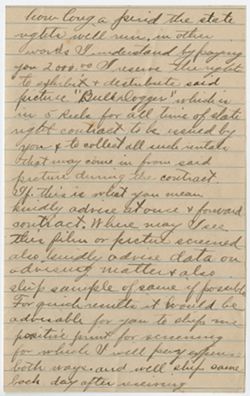 how long a period the state
rights will run, in other
words I understand by paying
you 2000.00 I reserve the right
to exhibit & destribute said
picture "Bulldogger" which is
in 5 Reels for all time of state
right contract to be issued by
you & to collect all such rentals
that may come in from said
picture during the contract.
If this is what you mean
kindly advise at once & forward
contract. Where may I see
this film or picture screened
also kindly advise data on
advising matter & also
ship sample of same if possible
For quick results it would be
advisable for you to ship me
positive print for screening
for which I will pay expense
both ways. and will ship same
back day after receiving